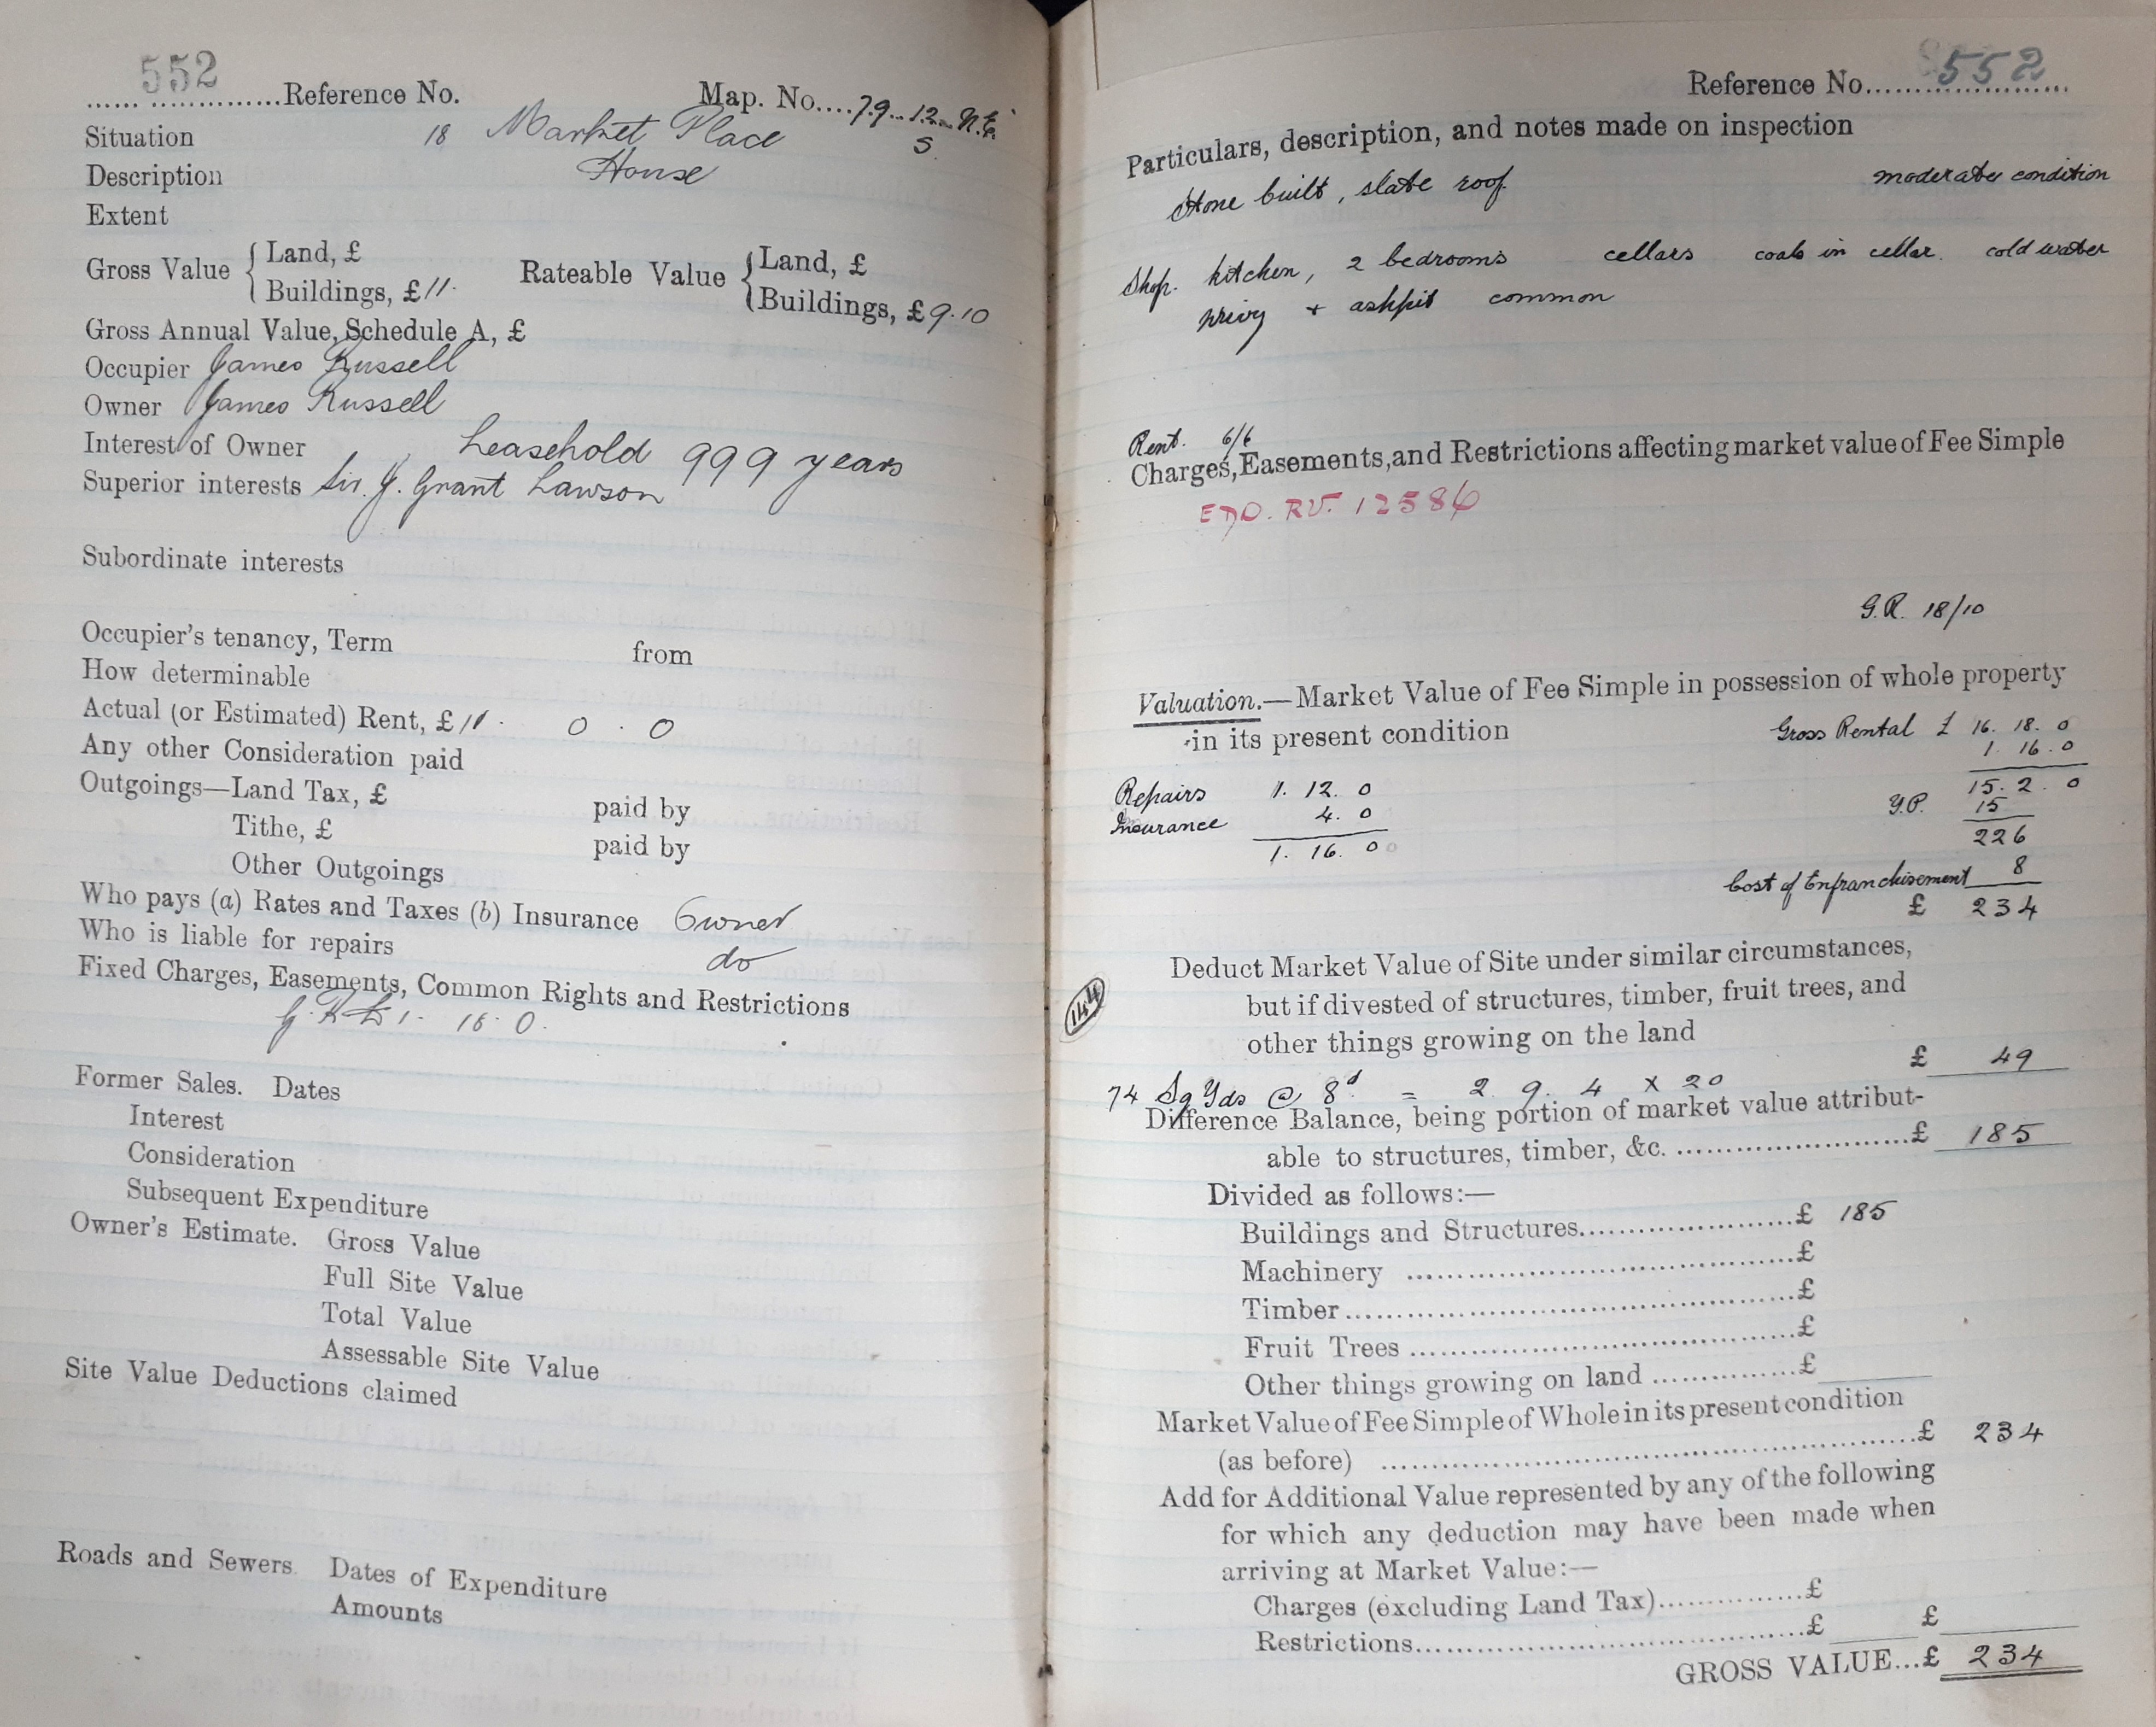 552
...... ..............Reference No. Map. No....79..12..N.E.
Situation 18 Market Place S.
Description House
Extent
Gross Value { Land, £ Rateable Value { Land, £
Buildings, £11. Buildings, £9.10
Gross Annual Value, Schedule A, £
Occupier James Russell
Owner James Russell
Interest of Owner Leasehold 999 years
Superior interests Sir. J. Grant Lawson
Subordinate interests
Occupier's tenancy, Term from
How determinable
Actual (or Estimated) Rent, £11. 0. 0
Any other Consideration paid
Outgoings—Land Tax, £ paid by
Tithe, £ paid by
Other Outgoings
Who pays (a) Rates and Taxes (b) Insurance Owner
Who is liable for repairs do
Fixed Charges, Easements, Common Rights and Restrictions
G. R. £1. 0.
Former Sales. Dates
Interest
Consideration
Subsequent Expenditure
Owner's Estimate. Gross Value
Full Site Value
Total Value
Assessable Site Value
Site Value Deductions claimed
Roads and Sewers. Dates of Expenditure
Amounts
Reference No....552
Particulars, description, and notes made on inspection
Stone built, slate roof. moderate condition
Shop. kitchen, 2 bedrooms cellars coals in cellar. cold water
privy + ashpit common
Rent. 6/6
Charges, Easements, and Restrictions affecting market value of Fee Simple
RV. 12586
G.R. 18/10
Valuation.—Market Value of Fee Simple in possession of whole property
in its present condition Gross Rental £ 16. 18. 0
1. 16. 0
Repairs 1. 12. 0 15. 2. 0
Insurance 4. 0 Y.P. 15
1. 16. 0 226
Cost of Enfranchisement 8
£ 234
Deduct Market Value of Site under similar circumstances,
144 but if divested of structures, timber, fruit trees, and
other things growing on the land
£ 49
74 Sq Yds @ 8d = 2 9. 4 x 20
Difference Balance, being portion of market value attribut-
able to structures, timber, &c. ........................£ 185
Divided as follows:—
Buildings and Structures......................£ 185
Machinery ......................................£
Timber.............................................£
Fruit Trees ......................................£
Other things growing on land ...............£
Market Value of Fee Simple of Whole in its present condition
(as before) .....................................................£ 234
Add for Additional Value represented by any of the following
for which any deduction may have been made when
arriving at Market Value:—
Charges (excluding Land Tax)...............£
Restrictions.........................................£ £
GROSS VALUE...£ 234